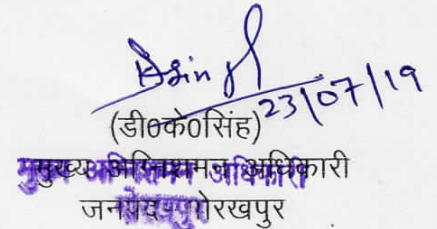 23/07/19
(डी0के0सिंह)
मुख्य अग्निशमन अधिकारी
जनपद गोरखपुर